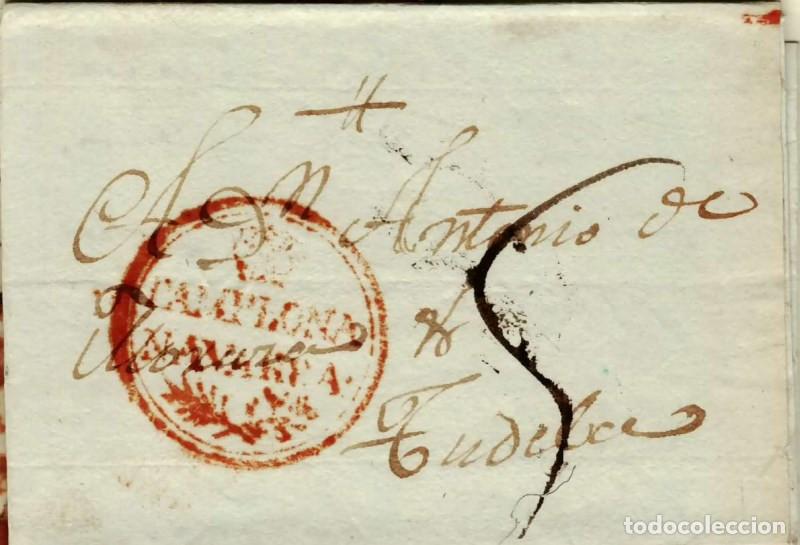 A Dn Antonio de
5
PAMPLONA
NAVARRA.
Tudela
todocoleccion